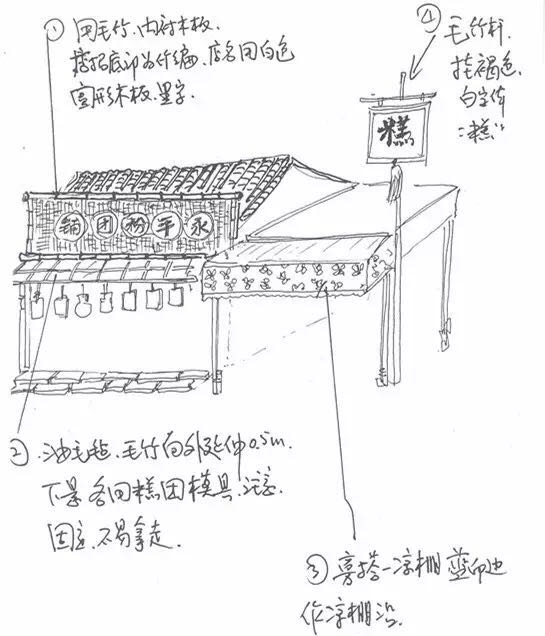 ① 用毛竹、内衬木板
底部为竹编,店名用白色
圆形木板、墨字
④ 毛竹杆.
挂褐色.
白字体
"糕"
糕
永平粉团铺
② 油毛毡、毛竹向外延伸0.5m.
下悬各糕团模具.注意
固定.不易拿走.
③ 旁搭一凉棚 蓝印
作凉棚沿.